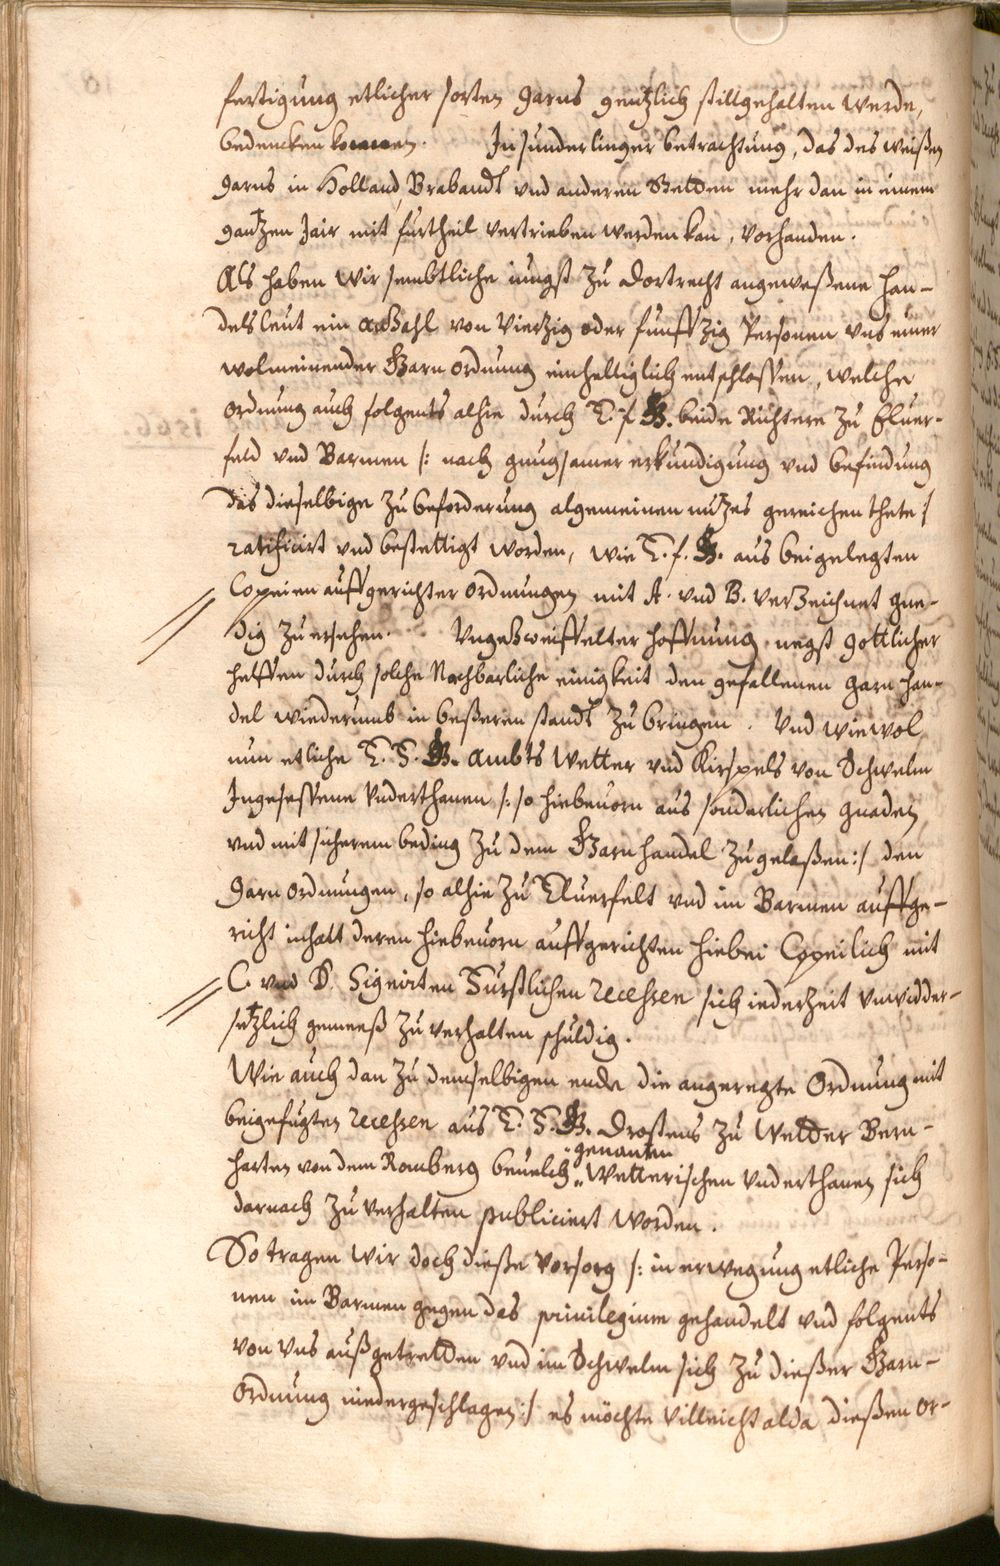 fertigung etlicher sorten garns gentzlich stillgehalten werde,
bedencken kommen. In sunderlinger betrachtung, das des weißen
garns in Holland, Brabandt vnd anderen Stetten mehr dan in einem
gantzen Jair mit furtheil vertrieben werden kan, vorhanden.
Als haben wir sembtliche iungst zu Dortrecht angeweßene han-
dels leut ein anzahl von Vierzig oder funffzig Personen vns einer
wolmeinender Garn ordnung einhelliglich entschloßen, welche
ordnung auch folgents alhie durch E. f. G. beide Richtere zu Eluer-
feld vnd Barmen /: nach gnugsamer erkundigung vnd befindung
das dieselbige zu beforderung algemeinen nutzes gereichen thete /
ratificirt vnd bestettigt worden, wie E. f. G. aus beigelegten
Copeien auffgerichter ordnungen mit A. vnd B. verzeichnet gne-
dig zu ersehen. Vngezweiffelter hoffnung negst gottlicher
helffen durch solche Nachbarliche einigkeit den gefallenen garn han-
del wiederumb in beßeren standt zu bringen. Vnd wiewol
nun etliche E. F. G. Ambts Wetter vnd Kirspels von Schwelm
Ingesessene Vnderthanen /: so hiebeuorn aus sonderlichen gnaden
vnd mit sicherem beding zu dem Garn handel zugelaßen :/ den
garn ordnungen, so alhie zu Eluerfelt vnd im Barmen auffge-
richt inhalt deren hiebeuorn auffgerichten hiebei Copeilich mit
C. vnd D. Signirten Fürstlichen Recessen sich iederzeit vnwidder-
setzlich gemeeß zu verhalten schuldig.
Wie auch dan zu demselbigen ende die angeregte Ordnung mit
beigefugten Recessen aus E. F. G. Drostens zu Wetter Bern-
harten von dem Romberg beuelch genanten Wetterischen Vnderthanen sich
darnach zu verhalten publiciert worden.
So tragen wir doch dieße vorsorg /: in erwegung etliche Perso-
nen im Barmen gegen das priuilegium gehandelt vnd folgents
von vns außgetretten vnd im Schwelm sich zu dießer Garn-
Ordnung niedergeschlagen :/ es möchte villeicht alda dießen or-